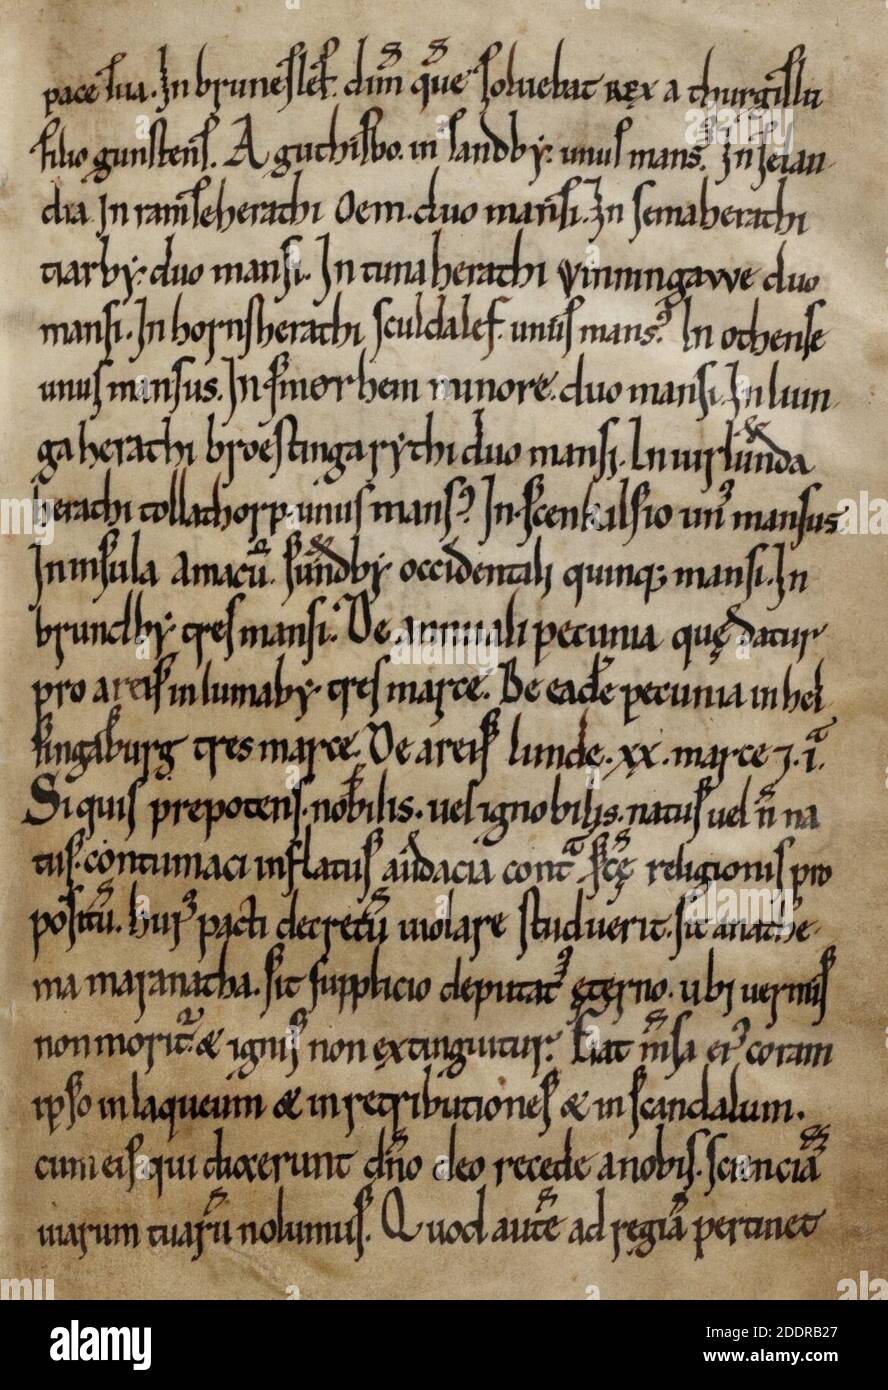 pace sua. In bruneslef. dim̄. quē soluebat rex a thurgislu
filio gunstens. A guthisbo. in sandby. unus mans᷒. In seian
dia In ramseherathi Oem. duo mansi. In semaherathi
tiarby. duo mansi. In tunaherathi vinningawe duo
mansi. In hornsherathi sculdalef. unus mans᷒. In othense
unus mansus. In smørhem minore. duo mansi. In lium
gaherathi broestingarythi duo mansi. In uirlunda
herathi tollathorp. unus mans᷒. In scenkilsio un᷒ mansus
In insula Amacū. sundby occidentali quinq; mansi. In
brundby. tres mansi. De annuali pecunia quę datur
pro areis in lumaby. tres marce. De eadē pecunia in hel
singaburg tres marce. De areis lunde. xx. marce ⁊ .iª.
Si quis prepotens. nobilis. uel ignobilis. natus uel ñ na
tus. contumaci inflatus audacia contª sc̄ę religionis pro
positū. hui᷒ pacti decretū uiolare studuerit. sit anathe
ma maranatha. sit supplicio deputat᷒ ęterno. ubi uermis
non morit᷑. & ignis non extinguitur. Fiat m̄sa ei᷒ coram
ipso in laqueum & in retributiones & in scandalum.
cum eis qui dixerunt dn̄o deo recede a nobis. scienciā
uiarum tuarū nolumus. Quod autē ad regiā pertinet
alamy
Image ID: 2DDRB27
www.alamy.com